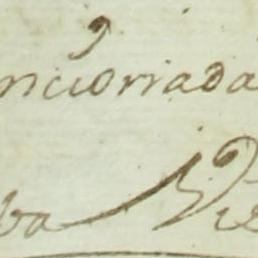 ncioriada
ba Vie